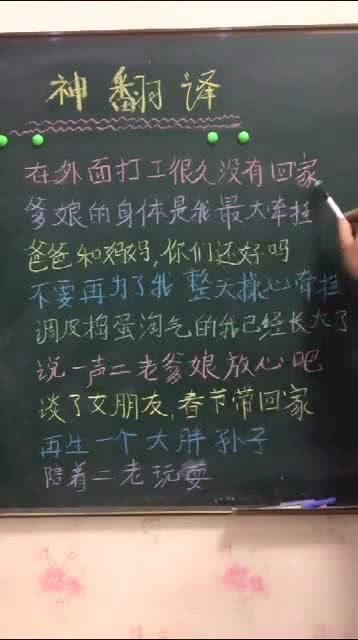 神翻译
在外面打工很久没有回家
爹娘的身体是我最大牵挂
爸爸和妈妈,你们还好吗
不要再为了我 整天操心牵挂
调皮捣蛋淘气的我已经长大了
说一声二老爹娘放心吧
谈了女朋友,春节带回家
再生一个大胖孙子
陪着二老玩耍